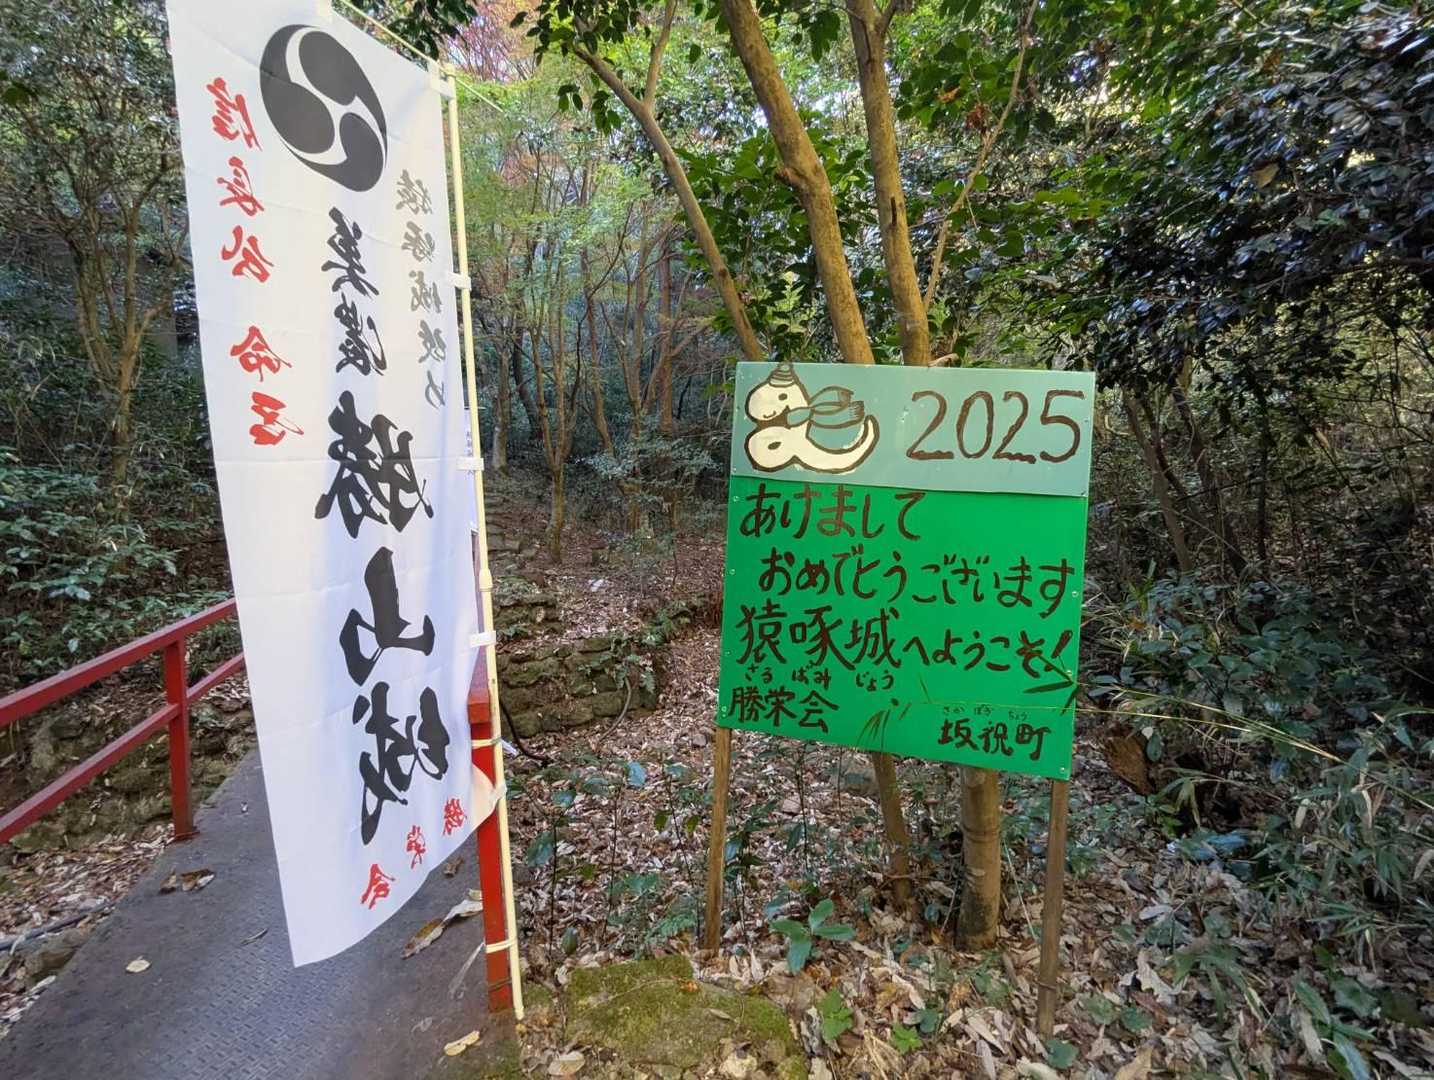 信長公 命名
猿啄城改め
美濃 勝山城
勝栄会
2025
あけまして
おめでとうございます
猿啄城へようこそ!
さる ばみ じょう
さか ほぎ ちょう
勝栄会 坂祝町